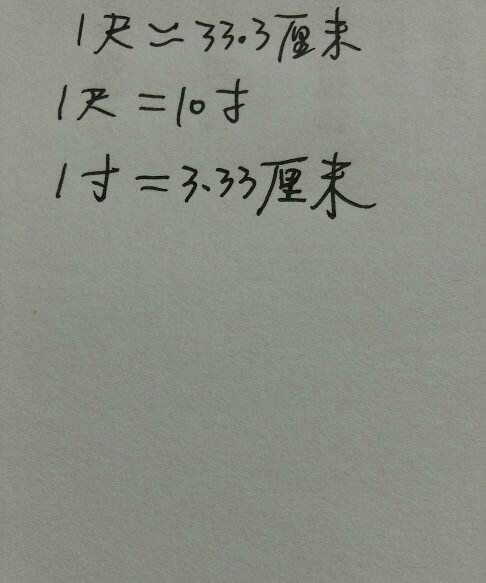 1尺≈33.3厘米
1尺=10寸
1寸=3.33厘米